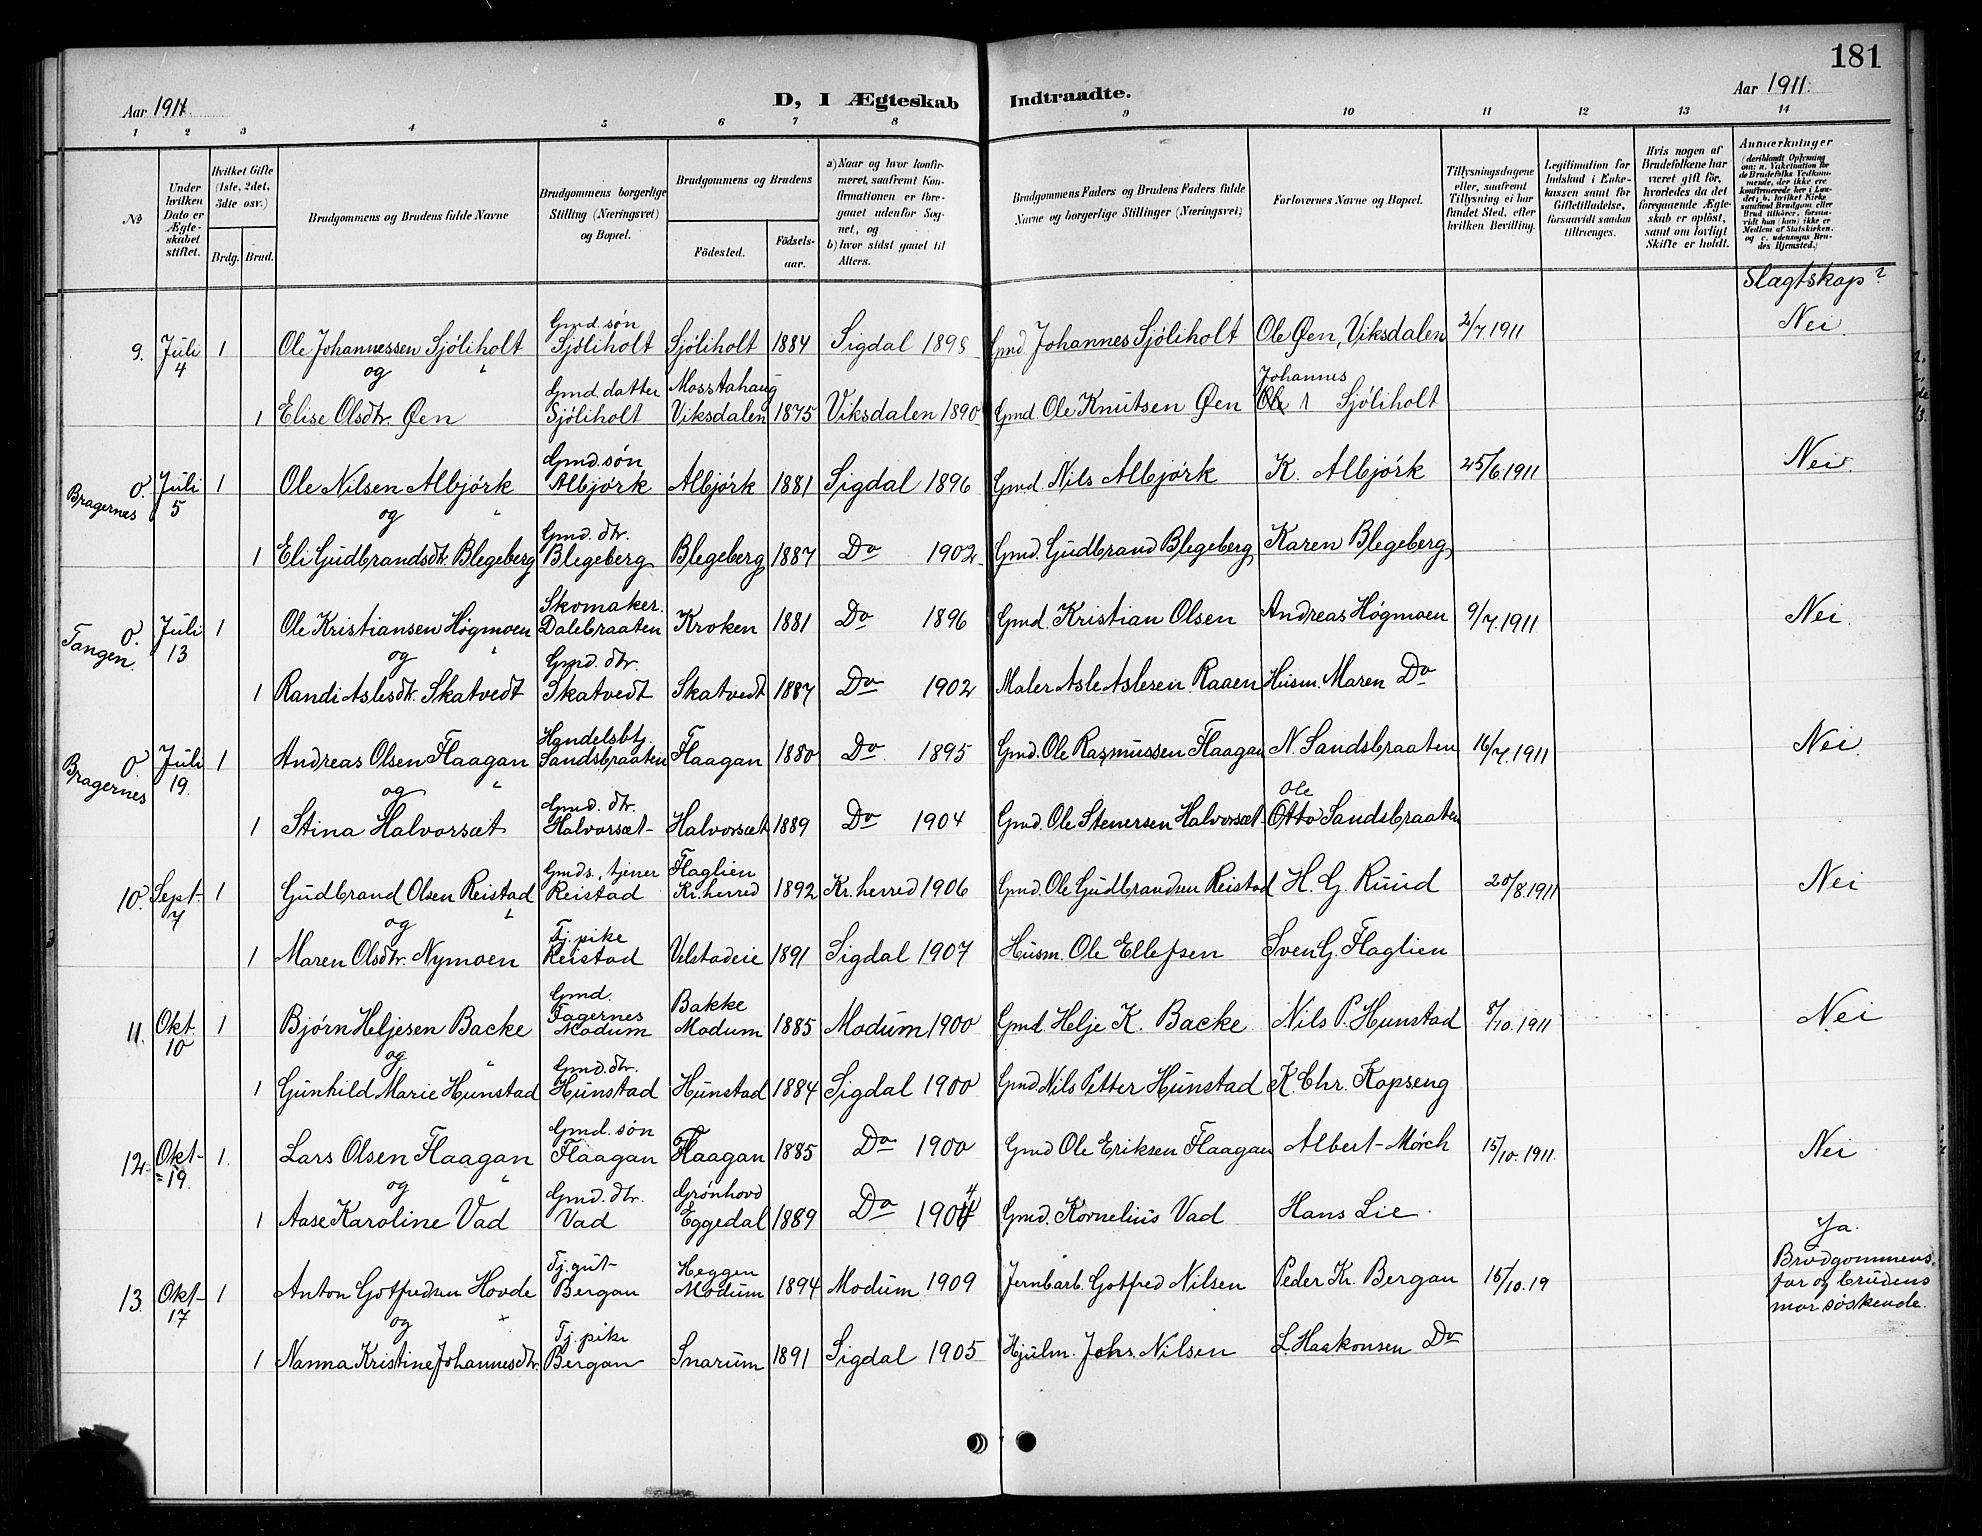 181
Aar 1911.
D, I Ægteskab
Indtraadte.
Aar 1911.
1 2 3 4 5 6 7 8 9 10 11 12 13 14
№
Under hvilken Dato er Ægteskabet stiftet.
Hvilket Gifte (1ste, 2det, 3dte osv.)
Brdg. Brud.
Brudgommens og Brudens fulde Navne
Brudgommens borgerlige Stilling (Næringsvei) og Bopæl.
Brudgommens og Brudens
Födested.
Födsels-aar.
a) Naar og hvor konfirmeret, saafremt Konfirmationen er foregaaet udenfor Sognet, og
b) hvor sidst gaaet til Alters.
Brudgommens Faders og Brudens Faders fulde Navne og borgerlige Stillinger (Næringsvei)
Forlovernes Navne og Bopæl.
Tillysningsdagene eller, saafremt Tillysning ei har fundet Sted, efter hvilken Bevilling.
Legitimation for Indskud i Enkekassen samt for Giftetilladelse, forsaavidt saadan tiltrænges.
Hvis nogen af Brudefolkene har været gift för, hvorledes da det foregaaende Ægteskab er oplöst, samt om lovligt Skifte er holdt.
Anmærkninger
(deriblandt Oplysning om: a. Vakcination for de Brudefolks Vedkommende, der ikke ere konfirmerede her i Landet; b. hvilket Kirkesamfund Brudgom eller Brud tilhörer, forsaavidt han (hun) ikke er Medlem af Statskirken, og c. udensogns Brudes Hjemsted.)
Slagtskap?
9. Juli 4 1 Ole Johannessen Sjóliholt Gmd. són Sjóliholt Sjóliholt 1884 Sigdal 1898 Gmd. Johannes Sjóliholt Ole Øen, Viksdalen 2/7.1911 Nei.
og "
1 Elise Olsdtr. Øen Gmd. datter Sjóliholt Mosstahaug Viksdalen 1875 Viksdalen 1890 Gmd. Ole Knutsen Øen Johannes Sjóliholt
Bragernes O. Juli 5 1 Ole Nilsen Albjórk Gmd. són Albjórk Albjórk 1881 Sigdal 1896 Gmd. Nils Albjórk K. Albjórk 25/6.1911 Nei.
og "
1 Eli Gudbrandsdtr. Blegeberg Gmd. dtr. Blegeberg Blegeberg 1887 Do 1902 Gmd. Gudbrand Blegeberg Karen Blegeberg
Tangen. O. Juli 13 1 Ole Kristiansen Högmoen Skomaker. Dalebraaten Kroken 1881 Do 1896 Gmd. Kristian Olsen Andreas Høgmoen 9/7.1911 Nei.
og "
1 Randi Aslesdtr. Skatvedt Gmd. dtr. Skatvedt Skatvedt 1887 Do 1902 Maler Asle Aslesen Raaen Husm. Maren Do
Bragernes O. Juli 19. 1 Andreas Olsen Flaagan Handelsbtj. Sandsbraaten Flaagan 1880 Do 1895 Gmd. Ole Rasmussen Flaagan N. Sandsbraaten 16/7.1911 Nei.
og "
1 Stina Halvorsæt Gmd. dtr. Halvorsæt Halvorsæt 1889 Do 1904 Gmd. Ole Stenersen Halvorsæt Ole Otto Sandsbraaten
10. Sept. 7 1 Gudbrand Olsen Reistad Gmds., tjener Reistad Flaglien Kr. herred 1892 Kr. herred 1906 Gmd. Ole Gudbrandsen Reistad H. G. Ruud 20/8.1911 Nei
og "
1 Maren Olsdtr. Nymoen Tj. pike Reistad Velstadeie 1891 Sigdal 1907 Husm. Ole Ellefsen Sven G. Flaglien
11. Okt. 10 1 Bjørn Heljesen Backe Gmd. Fagernes Modum Bakke Modum 1885 Modum 1900 Gmd. Helje K. Backe Nils P. Hunstad 8/10.1911 Nei
og "
1 Gunhild Marie Hunstad Gmd. dtr. Hunstad Hunstad 1884 Sigdal 1900 Gmd. Nils Petter Hunstad K. Chr. Kopseng
12. Okt. 19. 1. Lars Olsen Flaagan Gmd. són Flaagan Flaagan 1885 Do 1900 Gmd. Ole Eriksen Flaagan Albert Mórch 15/10.1911. Nei
og "
1 Aase Karoline Vad Gmd. dtr. Vad Grónhovd Eggedal 1889 Do 1904 Gmd. Kornelius Vad Hans Lie.
13. Okt. 17 1 Anton Gotfredsen Hovde Tj. gut Bergan Heggen Modum 1894 Modum 1909 Jernbarb. Gotfred Nilsen Peder Kr. Bergan 15/10.19 Ja. Brudgommens far og brudens mor søskende.
og
1 Nanna Kristine Johannesdtr. Tj. pike Bergan Snarum 1891 Sigdal 1905 Hjulm. Johs. Nilsen L. Haakonsen Do